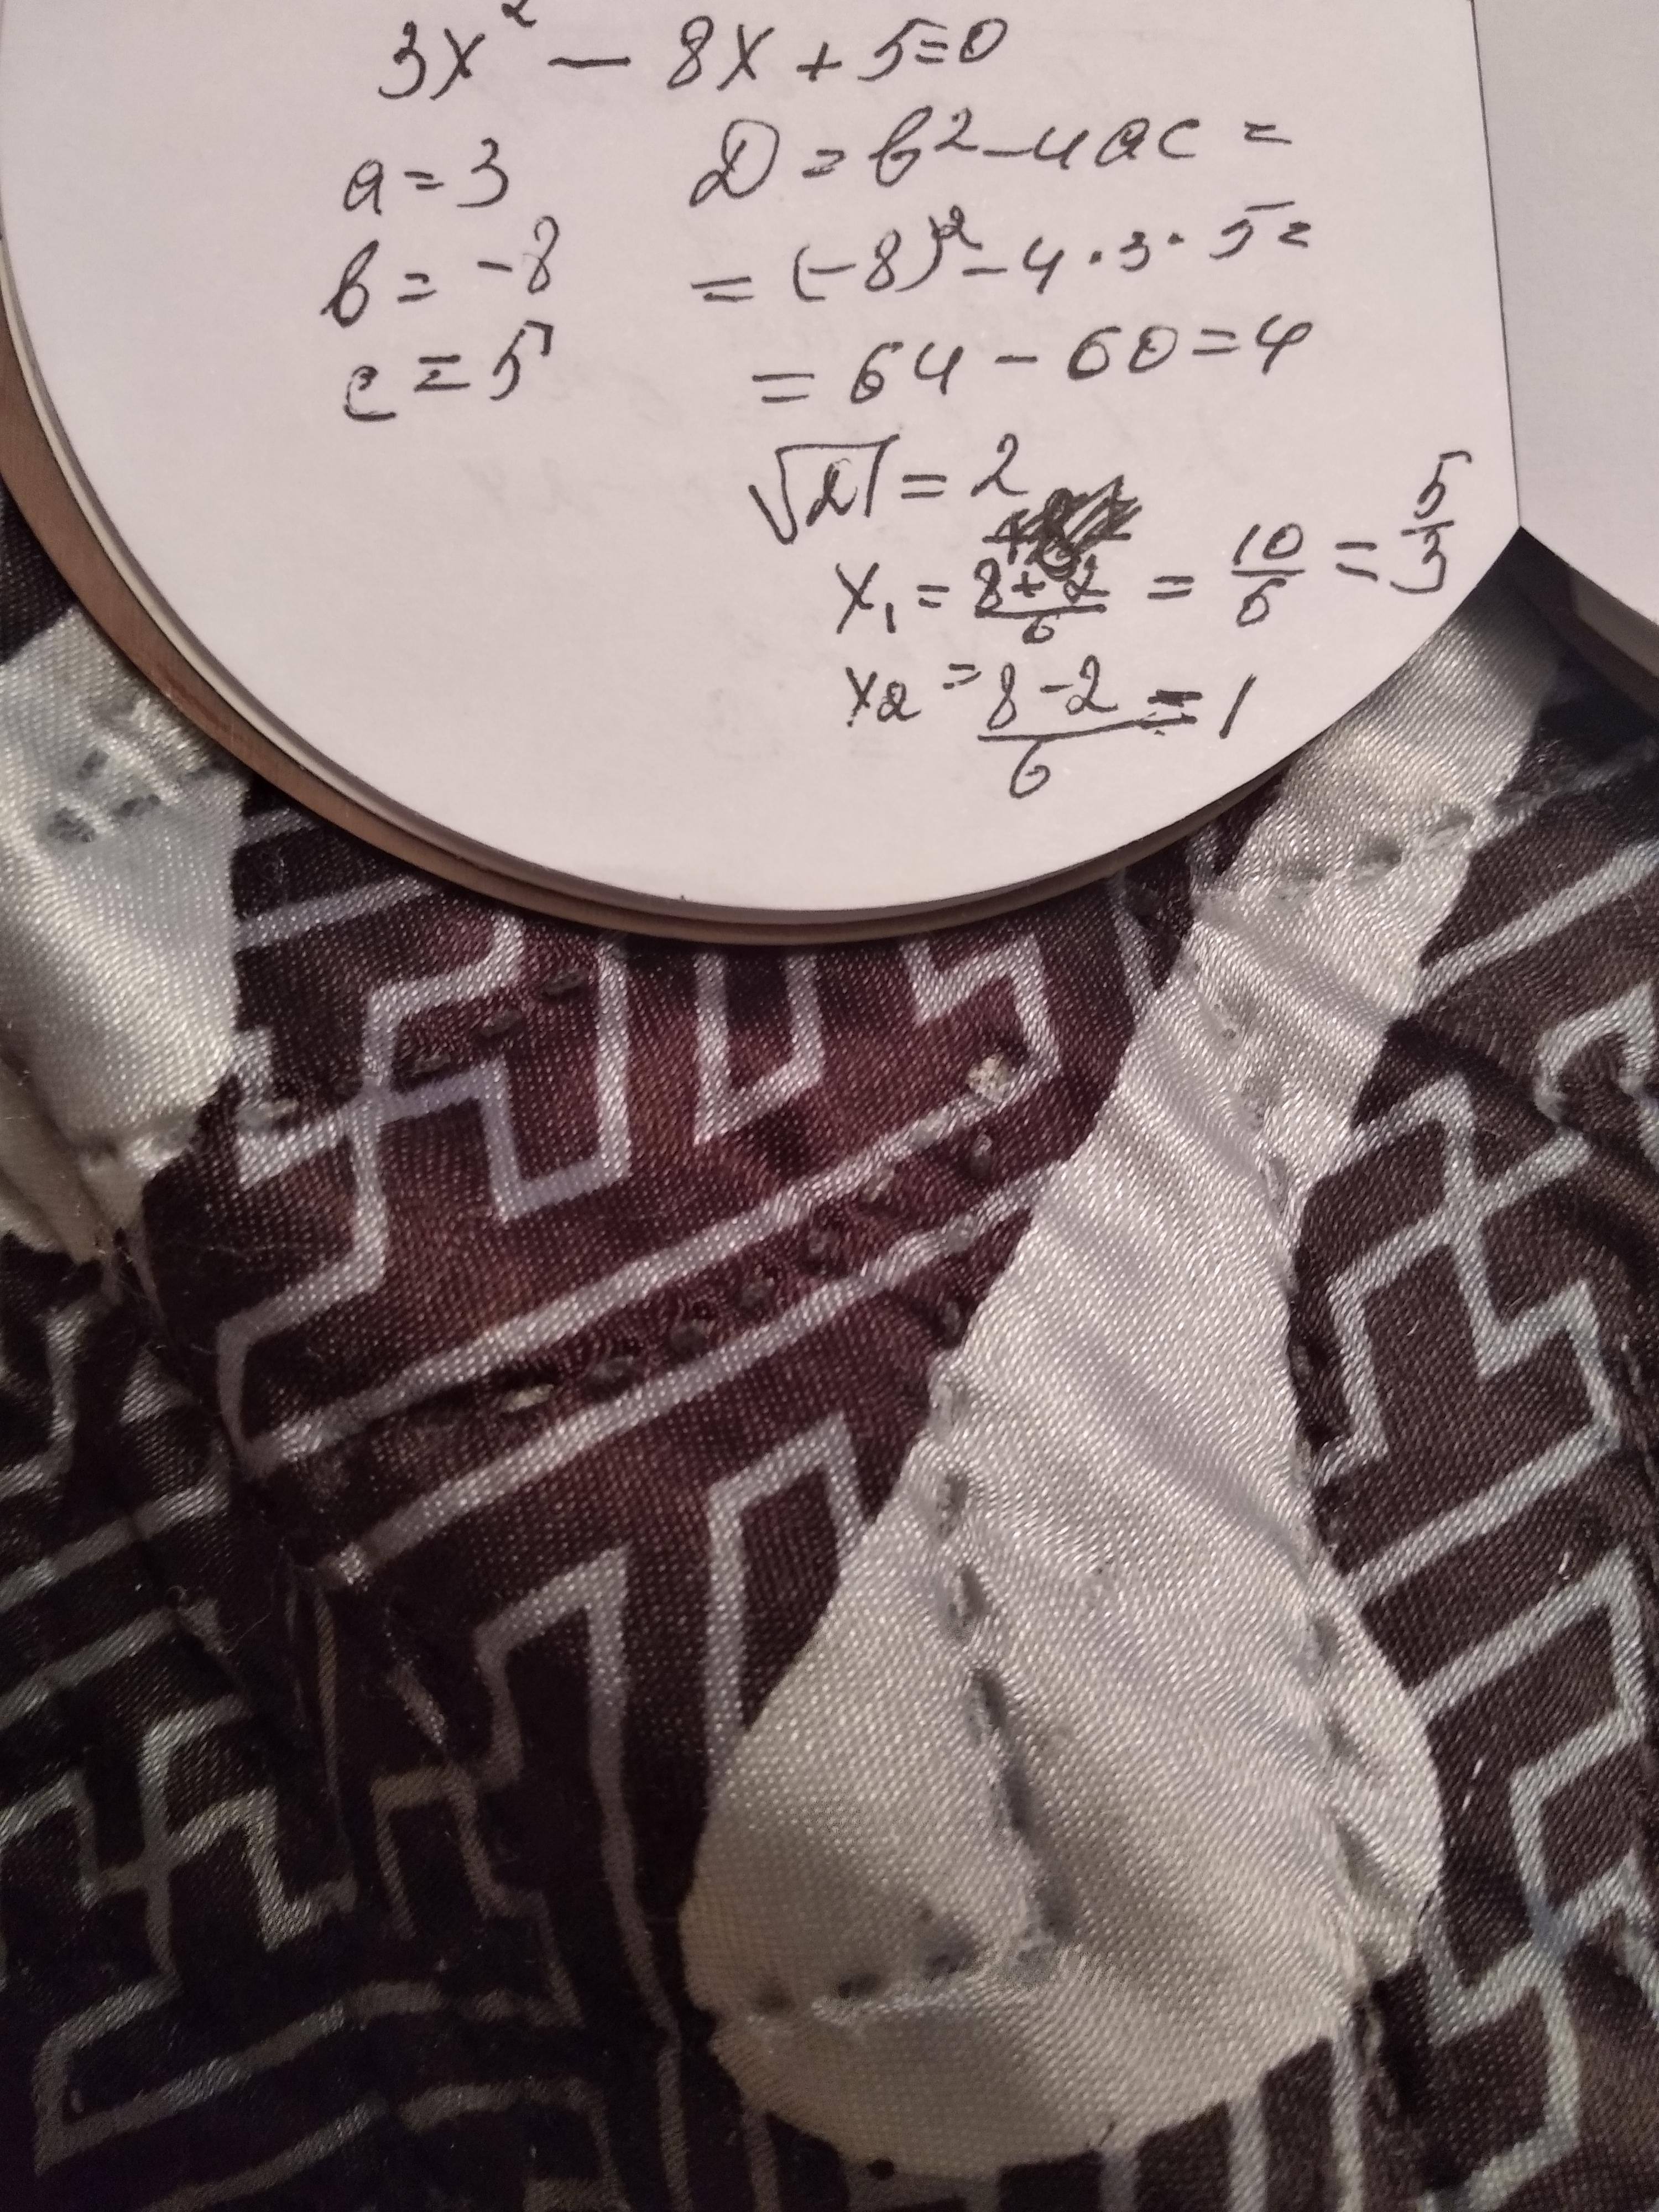 3x² - 8x + 5 = 0
a = 3 D = b² - 4ac =
b = -8 = (-8)² - 4 · 3 · 5 =
c = 5 = 64 - 60 = 4
√D = 2
x₁ = (8+2)/6 = 10/6 = 5/3
x₂ = (8-2)/6 = 1